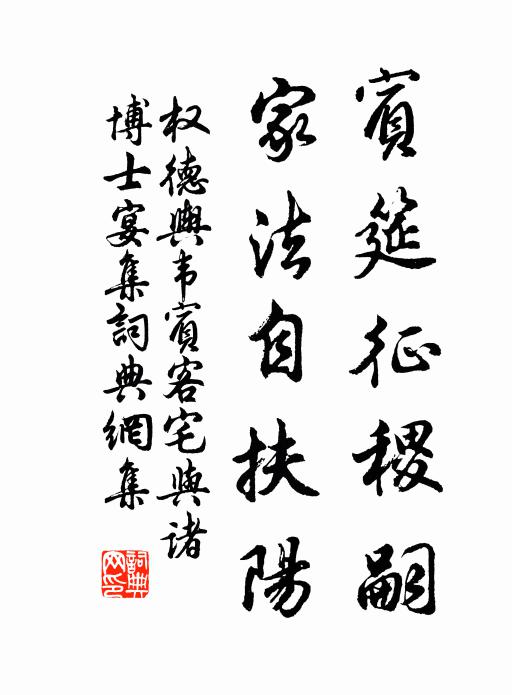 賓筵征稷嗣
家法自扶陽
权德輿韦賓客宅與諸
博士宴集詞典網集
詞典網印